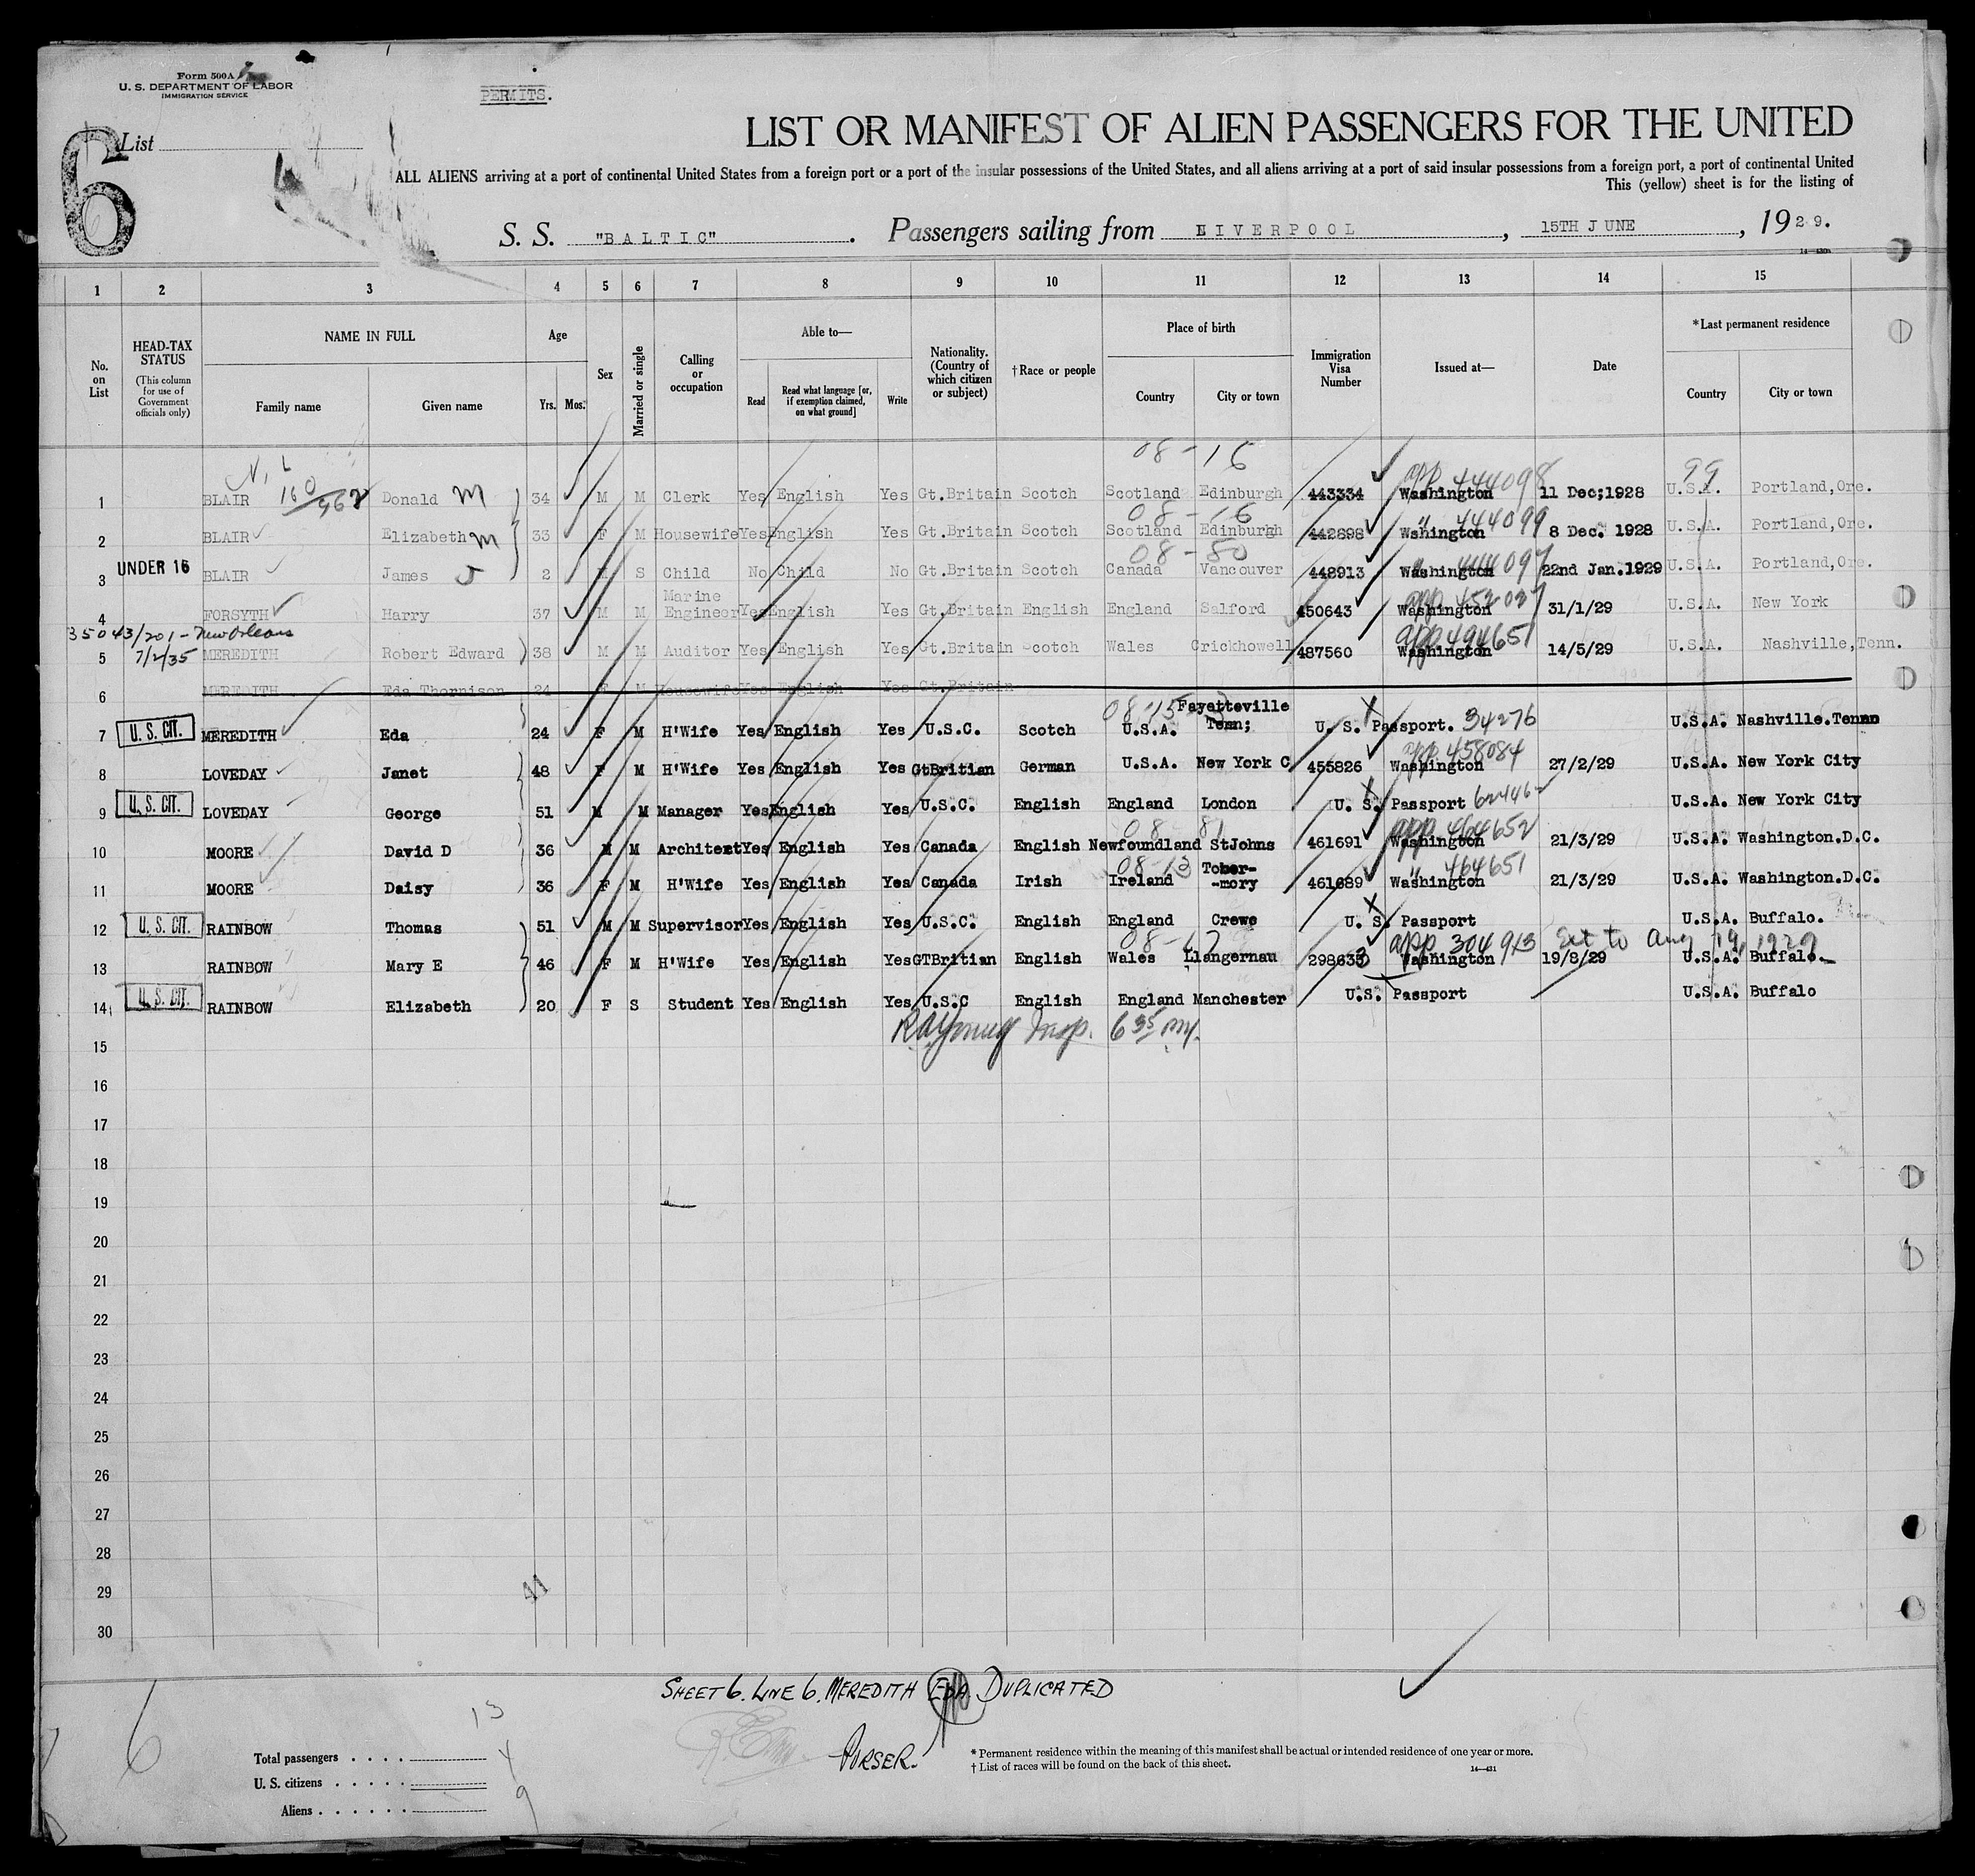 Form 500A
U. S. DEPARTMENT OF LABOR
IMMIGRATION SERVICE
PERMITS.
6
List
LIST OR MANIFEST OF ALIEN PASSENGERS FOR THE UNITED
ALL ALIENS arriving at a port of continental United States from a foreign port or a port of the insular possessions of the United States, and all aliens arriving at a port of said insular possessions from a foreign port, a port of continental United
This (yellow) sheet is for the listing of
S. S. "BALTIC". Passengers sailing from LIVERPOOL, 15TH JUNE, 1929.
14—430
1 2 3 4 5 6 7 8 9 10 11 12 13 14 15
No. on List
HEAD-TAX STATUS
(This column for use of Government officials only)
NAME IN FULL
Family name Given name
Age
Yrs. Mos.
Sex
Married or single
Calling or occupation
Able to—
Read Read what language [or, if exemption claimed, on what ground] Write
Nationality. (Country of which citizen or subject)
† Race or people
Place of birth
Country City or town
Immigration Visa Number
Issued at—
Date
* Last permanent residence
Country City or town
08-16 99
160/962
app 444098
1 BLAIR Donald M 34 M M Clerk Yes English Yes Gt.Britain Scotch Scotland Edinburgh 443334 Washington 11 Dec;1928 U.S.A. Portland,Ore.
08-16 " 444099
2 BLAIR Elizabeth M 33 F M Housewife Yes English Yes Gt.Britain Scotch Scotland Edinburgh 442898 Wshington 8 Dec. 1928 U.S.A. Portland,Ore.
UNDER 16 08-80 " 444097
3 BLAIR James 2 M S Child No Child No Gt.Britain Scotch Canada Vancouver 448913 Washington 22nd Jan.1929 U.S.A. Portland,Ore.
app 452027
4 FORSYTH Harry 37 M M Marine Engineer Yes English Yes Gt.Britain English England Salford 450643 Washington 31/1/29 U.S.A. New York
35043/201 - New Orleans
7/2/35 app 494651
5 MEREDITH Robert Edward 38 M M Auditor Yes English Yes Gt.Britain Scotch Wales Crickhowell 487560 Washington 14/5/29 U.S.A. Nashville,Tenn.
6 MEREDITH Eda Thornison 24 F M Housewife Yes English Yes Gt.Britain
08-15
7 U. S. CIT. MEREDITH Eda 24 F M H'Wife Yes English Yes U.S.C. Scotch U.S.A. Fayetteville Tenn; U. S. Passport. 34276 U.S.A. Nashville.Tenn
app 458084
8 LOVEDAY Janet 48 F M H'Wife Yes English Yes GtBritian German U.S.A. New York C 455826 Washington 27/2/29 U.S.A. New York City
9 U. S. CIT. LOVEDAY George 51 M M Manager Yes English Yes U.S.C. English England London U. S. Passport 62446 U.S.A. New York City
08-81 app 464652
10 MOORE David D 36 M M Architect Yes English Yes Canada English Newfoundland StJohns 461691 Washington 21/3/29 U.S.A. Washington.D.C.
08-13 " 464651
11 MOORE Daisy 36 F M H'Wife Yes English Yes Canada Irish Ireland Tober--mory 461689 Washington 21/3/29 U.S.A. Washington.D.C.
12 U. S. CIT. RAINBOW Thomas 51 M M Supervisor Yes English Yes U.S.C. English England Crewe U. S. Passport U.S.A. Buffalo.
08-17 app 304913 Ext to Aug 19, 1929
13 RAINBOW Mary E 46 F M H'Wife Yes English Yes GTBritian English Wales Llangernau 298633 Washington 19/8/29 U.S.A. Buffalo.
14 U. S. CIT. RAINBOW Elizabeth 20 F S Student Yes English Yes U.S.C English England Manchester U.S. Passport U.S.A. Buffalo
Insp. 6 35 PM.
15
16
17
18
19
20
21
22
23
24
25
26
27
28
29
30
41
SHEET 6. LINE 6. MEREDITH EDA. DUPLICATED
PURSER.
6
13
Total passengers
4
U. S. citizens
9
Aliens
* Permanent residence within the meaning of this manifest shall be actual or intended residence of one year or more.
† List of races will be found on the back of this sheet.
14—431